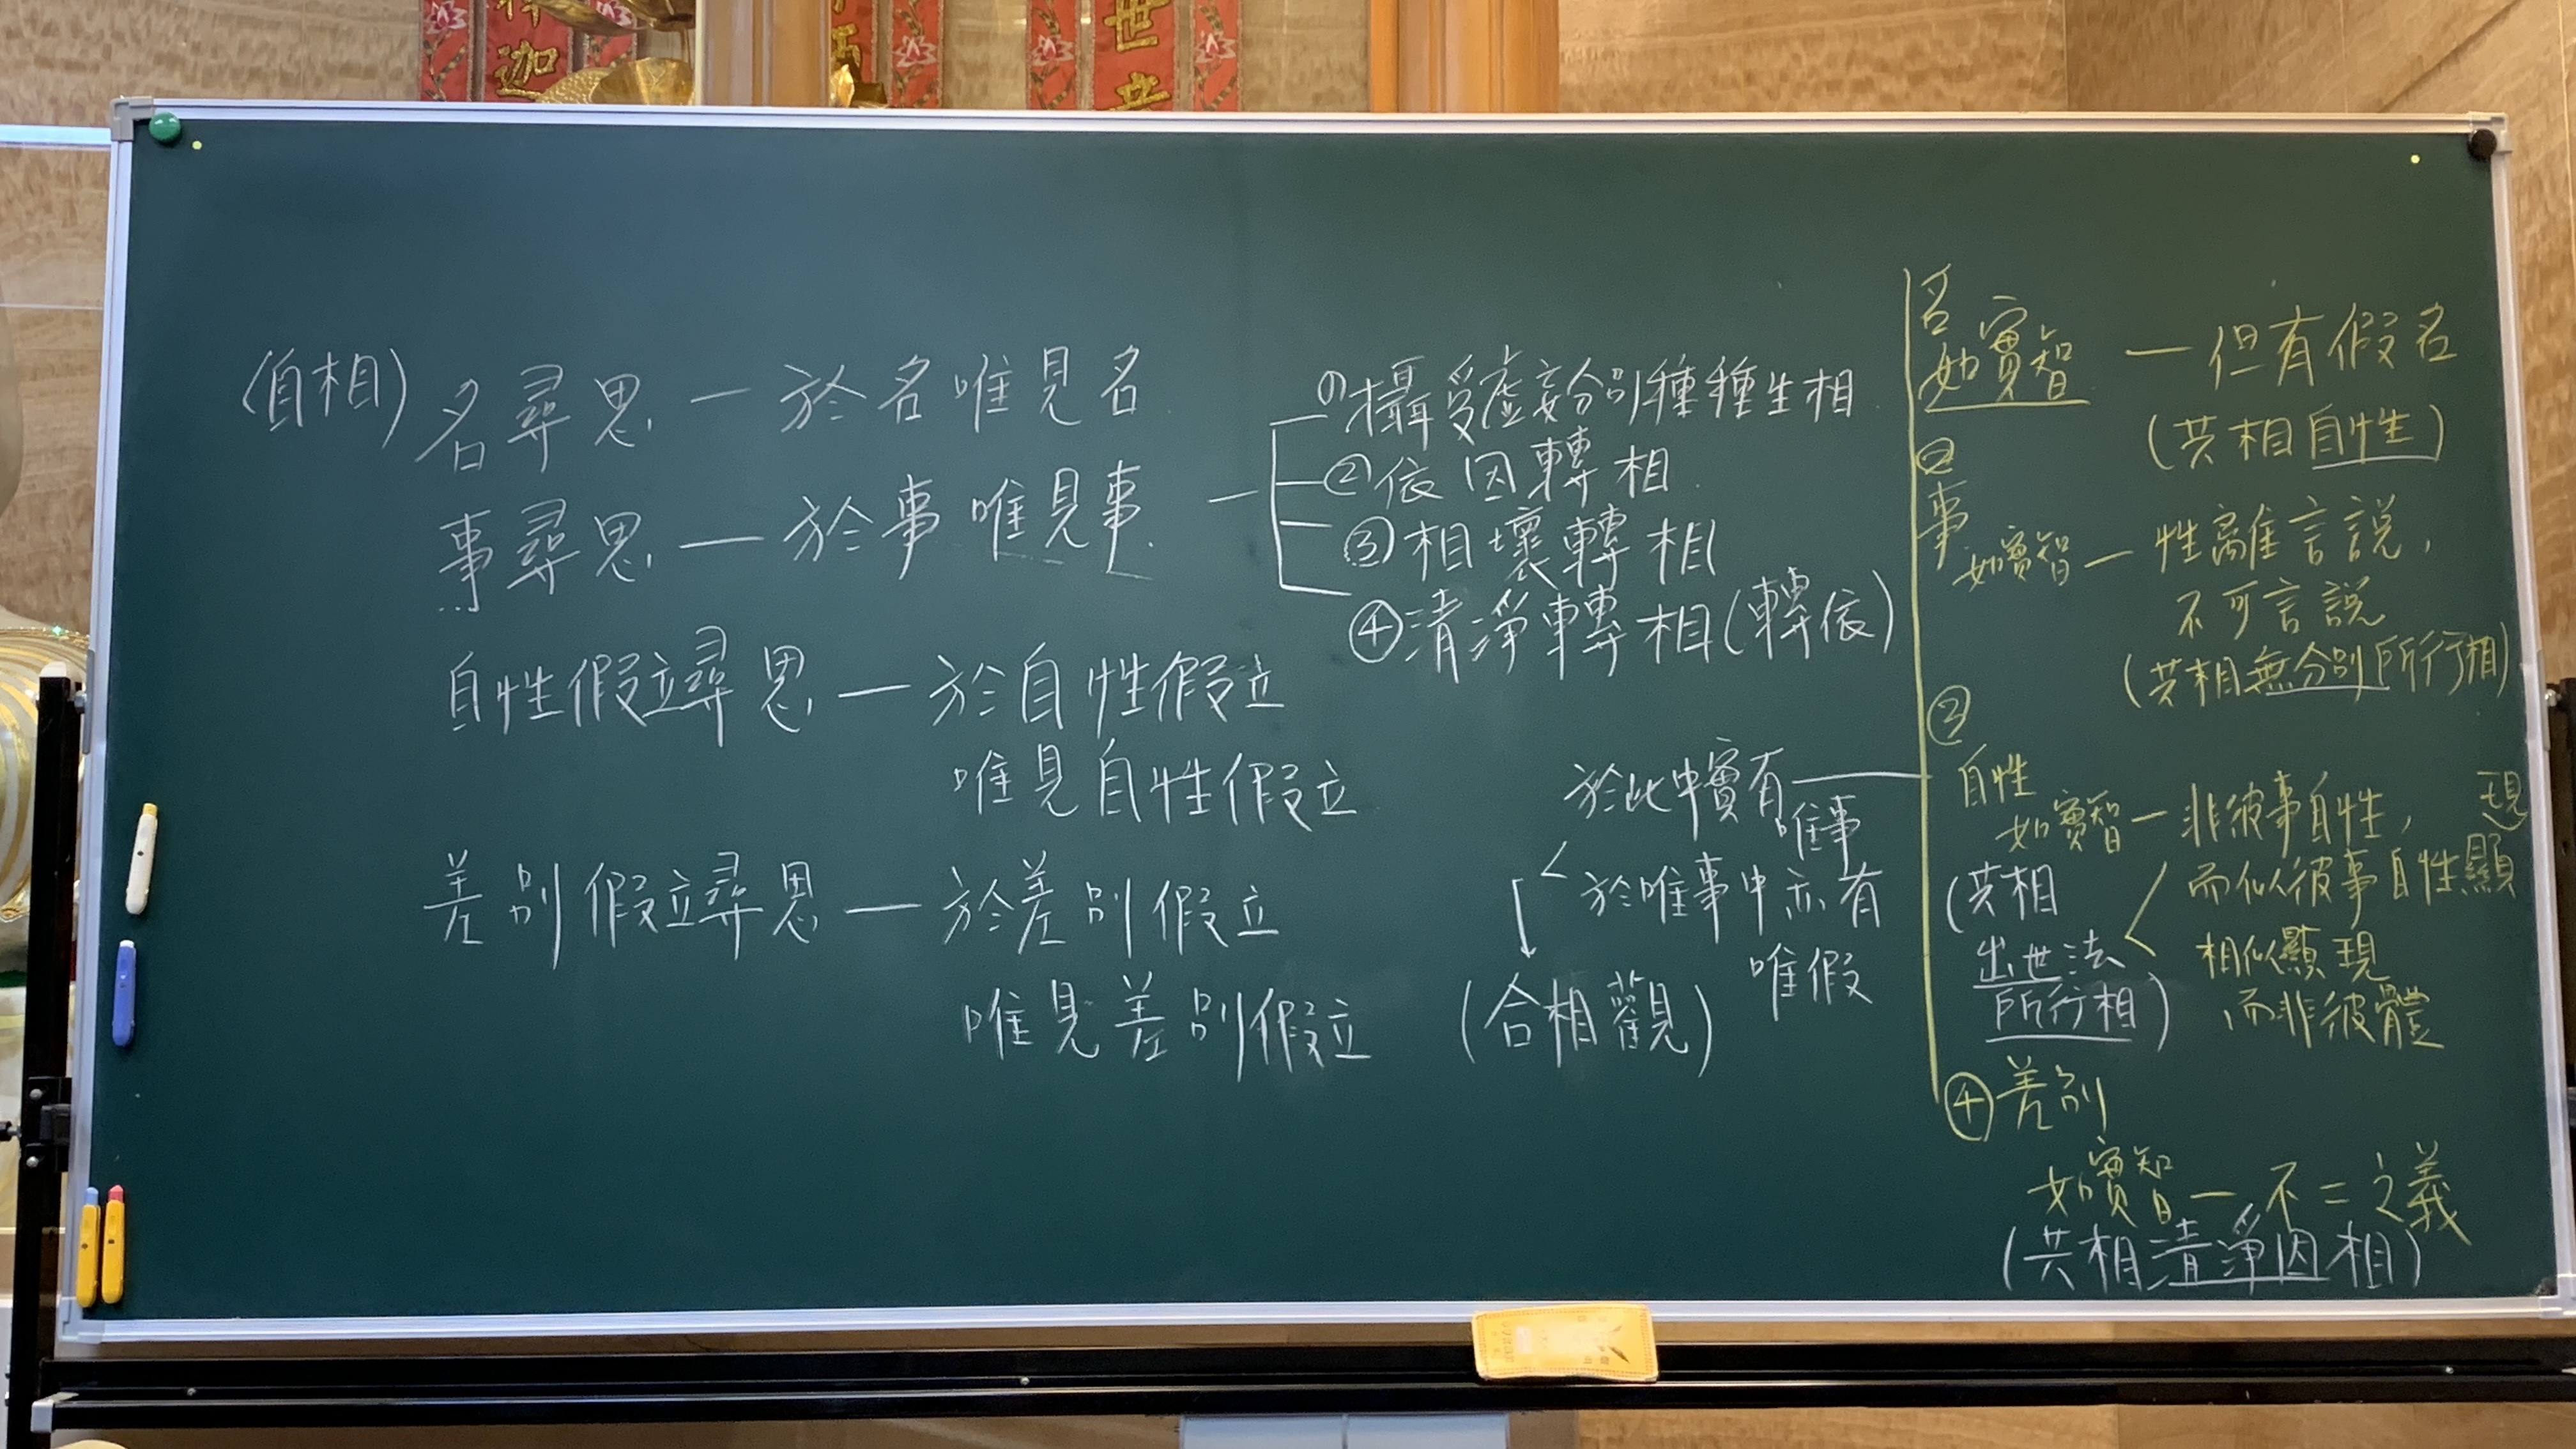 迦
世
(自相) 名尋思 — 於名唯見名
事尋思 — 於事唯見事
自性假立尋思 — 於自性假立
唯見自性假立
差別假立尋思 — 於差別假立
唯見差別假立
①攝受虛妄分別種種生相
②依因轉相
③相壞轉相
④清淨轉相(轉依)
於此中實有
唯事
於唯事中亦有
唯假
(合相觀)
名
如實智 — 但有假名
(共相自性)
②
事
如實智 — 性離言說,
不可言說
(共相無分別所行相)
③
自性
如實智 — 非彼事自性,
而似彼事自性顯
現
(共相
出世法
所行相)
相似顯現
而非彼體
④差別
如實智 — 不二之義
(共相清淨因相)